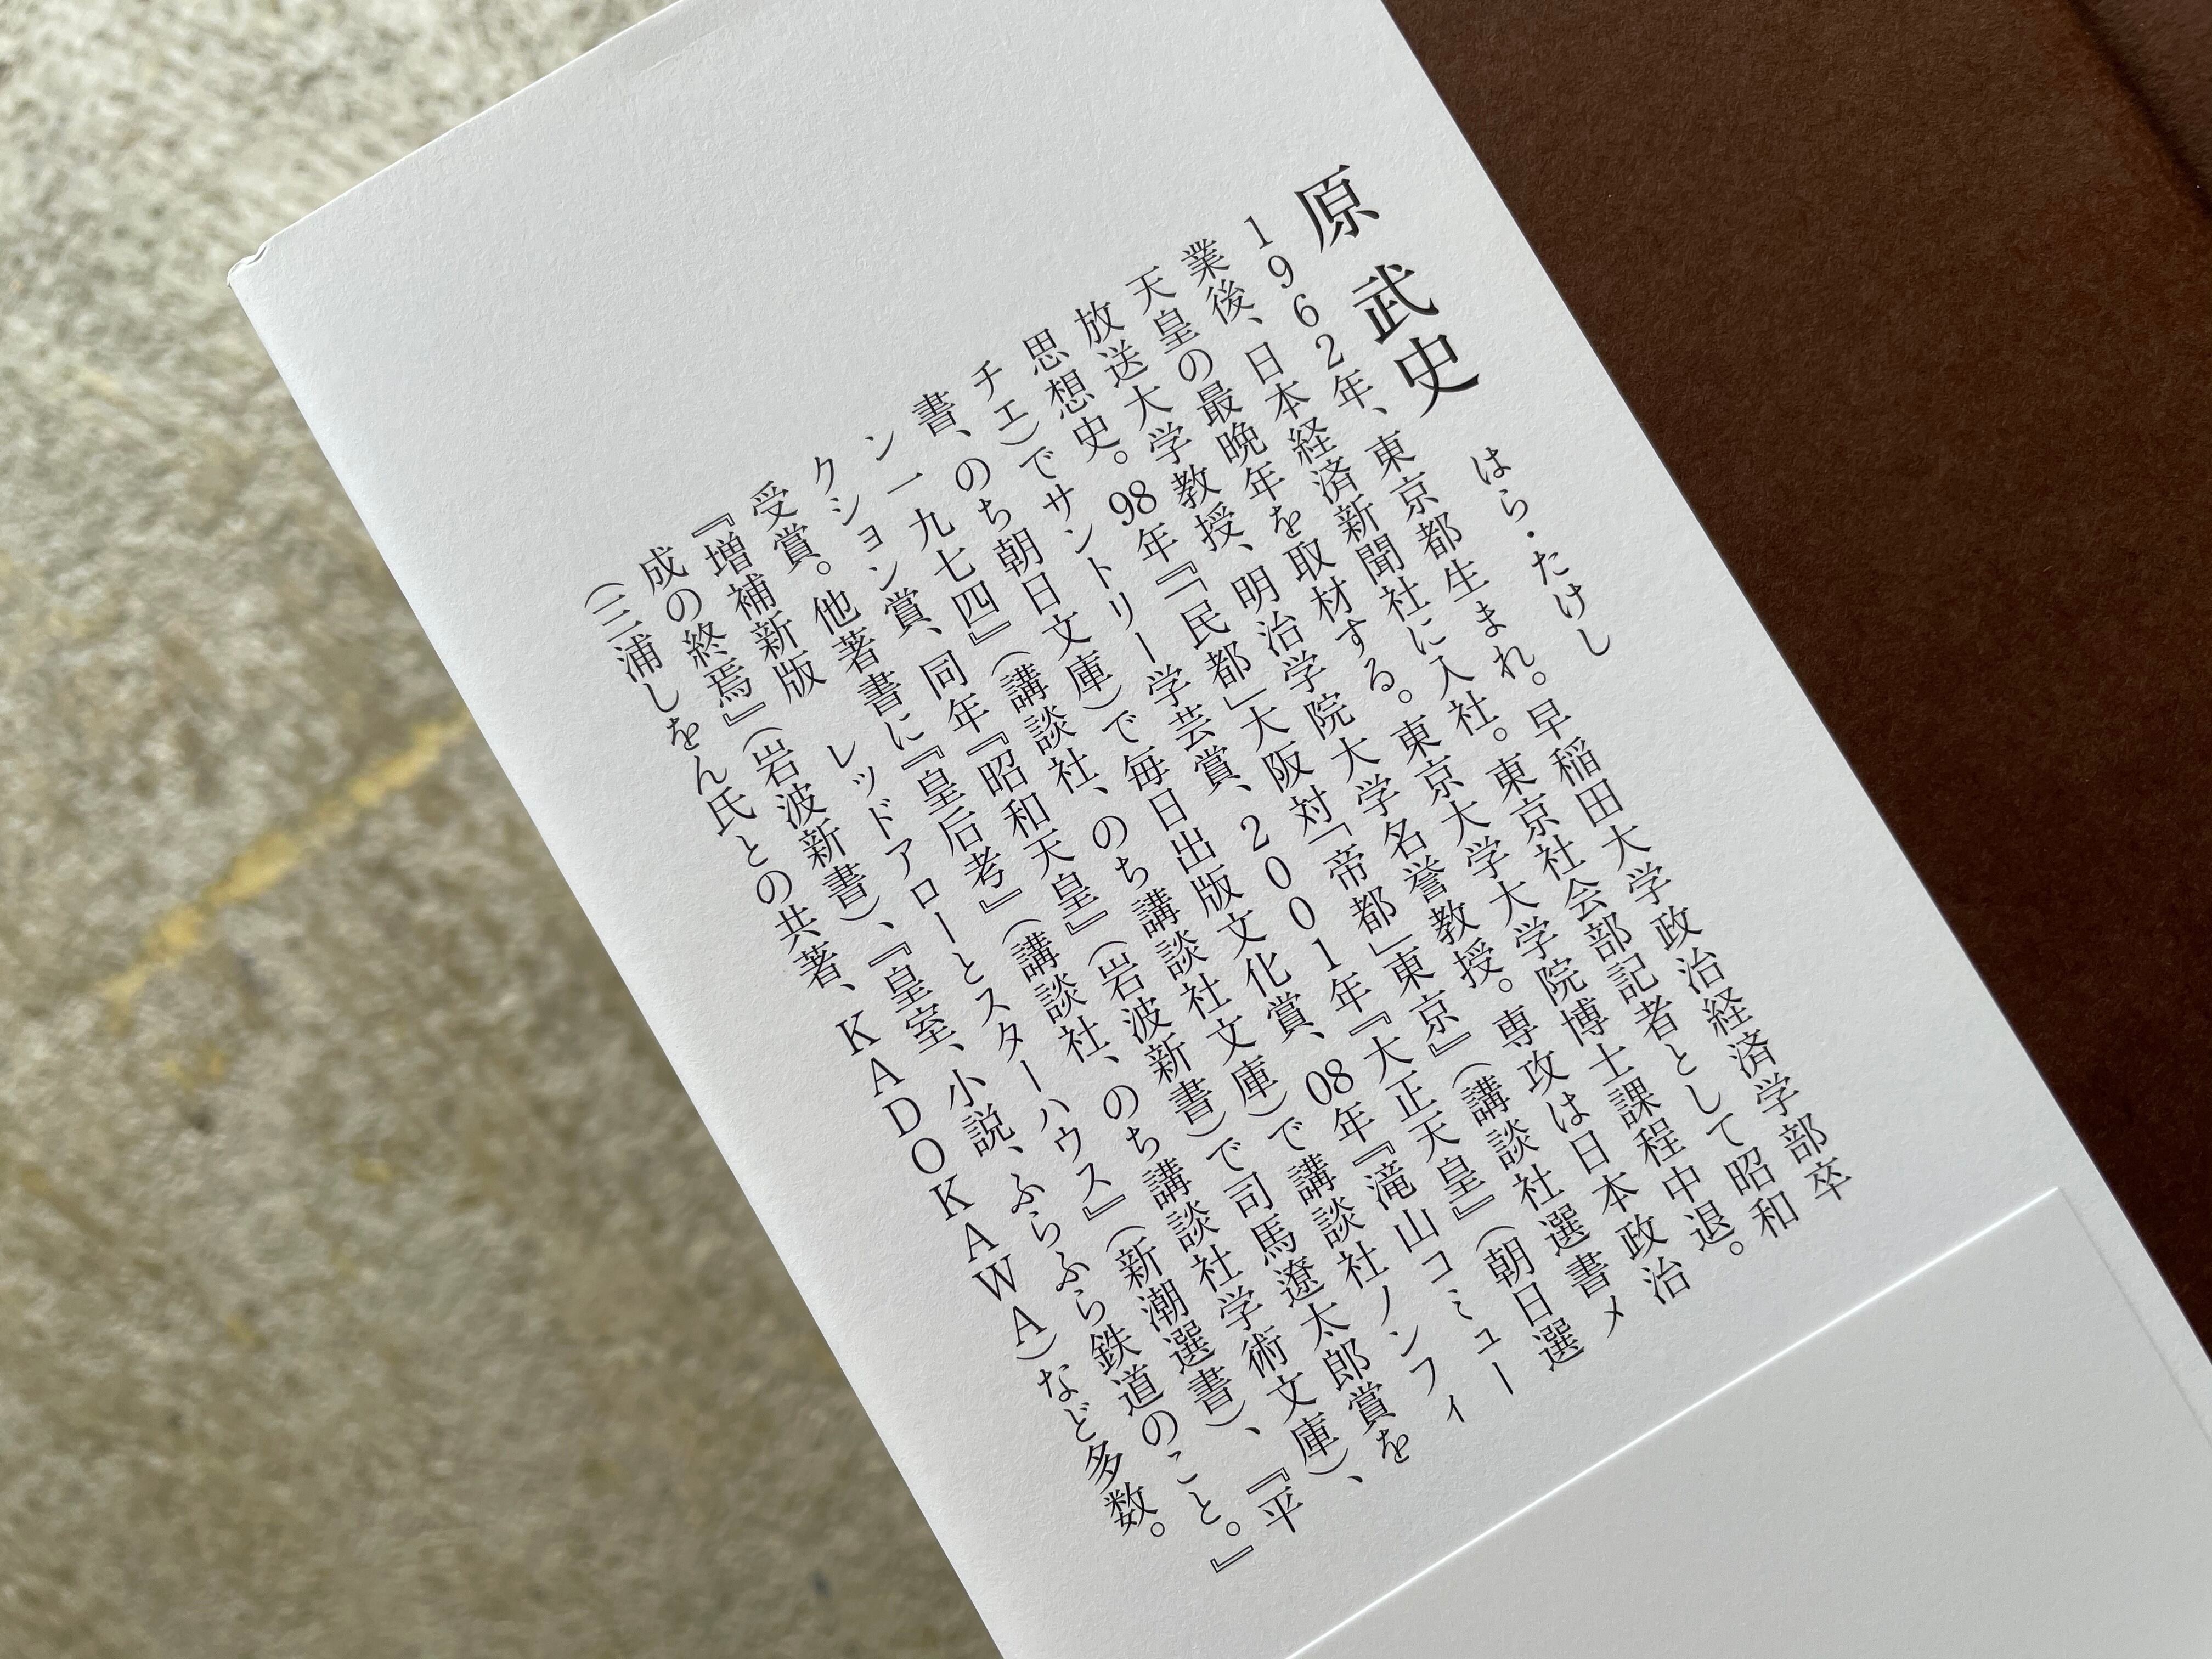 原 武史 はら・たけし
1962年、東京都生まれ。早稲田大学政治経済学部卒
業後、日本経済新聞社に入社。東京社会部記者として昭和
天皇の最晩年を取材する。東京大学大学院博士課程中退。
放送大学教授、明治学院大学名誉教授。専攻は日本政治
思想史。98年『「民都」大阪対「帝都」東京』（講談社選書メ
チエ）でサントリー学芸賞、2001年『大正天皇』（朝日選
書、のち朝日文庫）で毎日出版文化賞、08年『滝山コミュー
ン一九七四』（講談社、のち講談社文庫）で講談社ノンフィ
クション賞、同年『昭和天皇』（岩波新書）で司馬遼太郎賞を
受賞。他著書に『皇后考』（講談社、のち講談社学術文庫）、
『増補新版 レッドアローとスターハウス』（新潮選書）、『平
成の終焉』（岩波新書）、『皇室、小説、ふらふら鉄道のこと。』
（三浦しをん氏との共著、KADOKAWA）など多数。